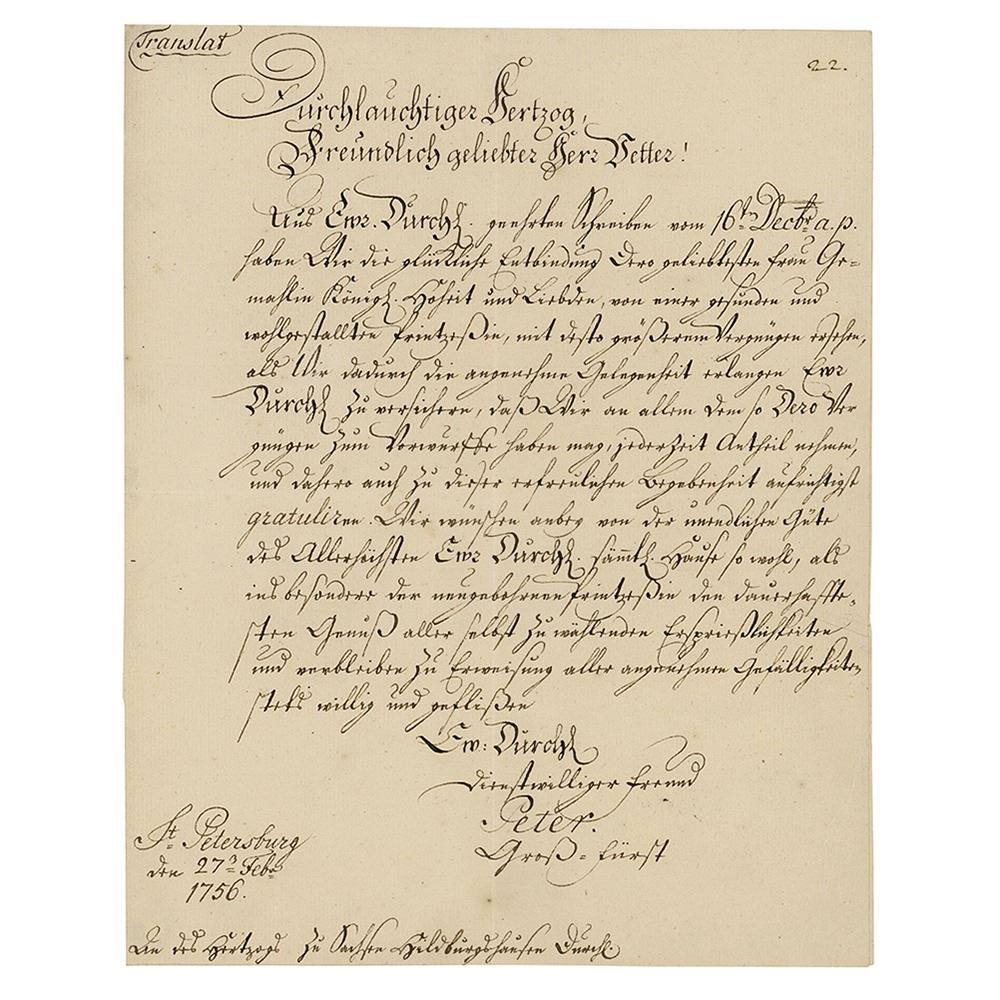 Translat
22.
Durchlauchtiger Hertzog,
Freundlich geliebter Herr Vetter!
Aus Ewr. Durchl. geehrten Schreiben vom 16ten Decbr. a. p.
haben Wir die glückliche Entbindung Dero geliebtesten Frau Ge=
mahlin Königl. Hoheit und Liebden, von einer gesunden und
wohlgestallten Printzeßin, mit desto größerem Vergnügen ersehen,
als Wir dadurch die angenehme Gelegenheit erlangen Ewr
Durchl. zu versichern, daß Wir an allem dem so Dero Ver
gnügen zum Vorwurffe haben mag, jederzeit Antheil nehmen,
und dahero auch zu dieser erfreulichen Begebenheit aufrichtigst
gratuliren. Wir wünschen anbey von der unendlichen Güte
des Allerhöchsten Ewr Durchl. sämtl. Hause so wohl, als
ins besondere der neugebohrnen Printzeßin den dauerhaffte=
sten Genuß aller selbst zu wählenden Ersprießlichkeiten
und verbleiben zu Erweisung aller angenehmen Gefälligkeiten
stets willig und geflißen
Ew: Durchl
dienstwilliger Freund
Peter.
Groß=Fürst
St. Petersburg
den 27. Febr.
1756.
An des Hertzogs zu Sachsen Hildburgshausen Durchl.